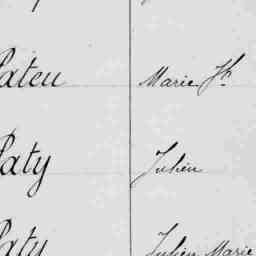 Pateu Marie Jh
Paty Julien
Paty Julien Marie